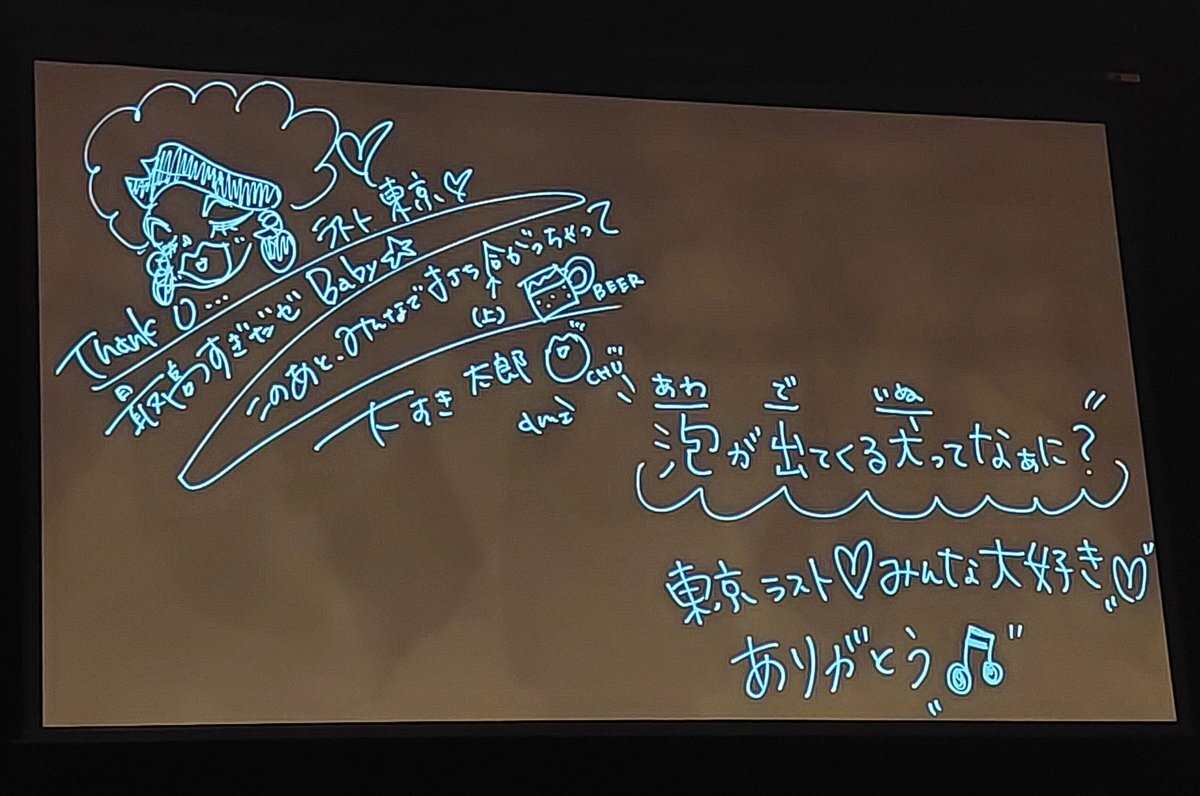 ラスト東京♡
Thank U...
最高っすぎだぜ Baby☆
このあと、みんなで がっちゃって
(上) BEER
大すき 太郎 CHU
あわ で いぬ
泡が出てくる犬ってなぁに?
東京ラスト♡みんな大好き♡
ありがとう♫